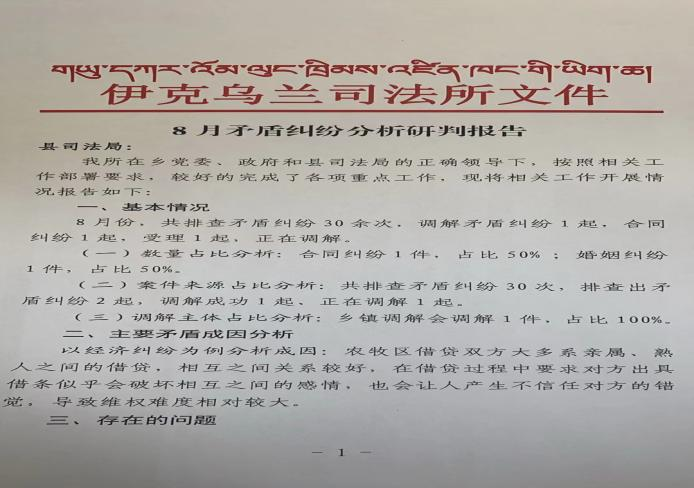 གཡུ་དཀར་འོམ་ལུང་ཁྲིམས་འཛིན་ཁང་གི་ཡིག་ཆ།
伊克乌兰司法所文件
8月矛盾纠纷分析研判报告
县司法局：
我所在乡党委、政府和县司法局的正确领导下，按照相关工
作部署要求，较好的完成了各项重点工作，现将相关工作开展情
况报告如下：
一、基本情况
8月份，共排查矛盾纠纷30余次，调解矛盾纠纷1起，合同
纠纷1起，受理1起，正在调解。
（一）数量占比分析：合同纠纷1件，占比50%；婚姻纠纷
1件，占比50%。
（二）案件来源占比分析：共排查矛盾纠纷30次，排查出矛
盾纠纷2起，调解成功1起、正在调解1起。
（三）调解主体占比分析：乡镇调解会调解1件，占比100%。
二、主要矛盾成因分析
以经济纠纷为例分析成因：农牧区借贷双方大多系亲属、熟
人之间的借贷，相互之间关系较好，在借贷过程中要求对方出具
借条似乎会破坏相互之间的感情，也会让人产生不信任对方的错
觉，导致维权难度相对较大。
三、存在的问题
— 1 —